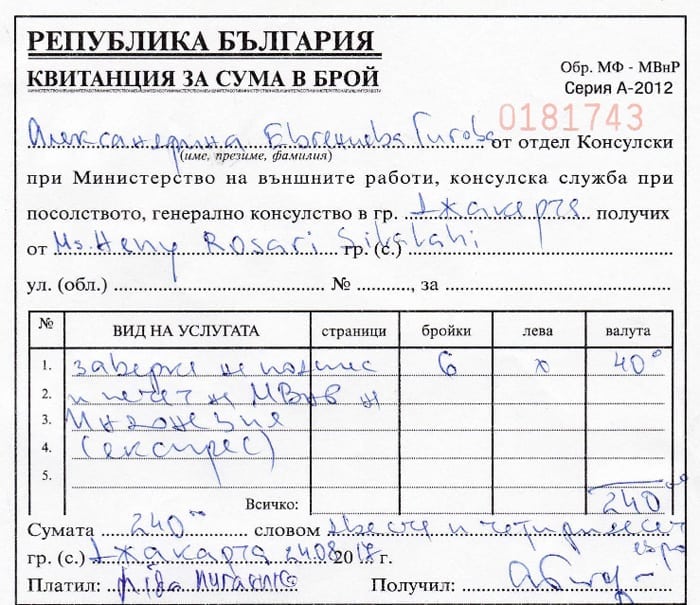 РЕПУБЛИКА БЪЛГАРИЯ
КВИТАНЦИЯ ЗА СУМА В БРОЙ
Обр. МФ - МВнР
Серия А-2012
0181743
Александрина Евгениева Гигова от отдел Консулски
(име, презиме, фамилия)
при Министерство на външните работи, консулска служба при
посолството, генерално консулство в гр. Джакарта получих
от Ms. Heny Rosari Silalahi гр. (с.)
ул. (обл.) № , за
№ ВИД НА УСЛУГАТА страници бройки лева валута
1. заверка на подпис 6 x 40°
2. и печат на МВнР на
3. Индонезия
4. (експрес)
5.
Всичко: 240
Сумата 240 словом двеста и четиридесет
евро
гр. (с.) Джакарта 24082017 г.
Платил: Получил: